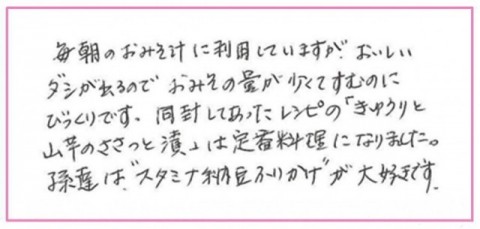 毎朝のおみそ汁に利用していますが、おいしい
ダシが出るので おみその量が少くてすむのに
びっくりです。同封してあったレシピの「きゅうりと
山芋のささっと漬」は定番料理になりました。
孫達は、"スタミナ納豆ふりかけ"が大好きです。